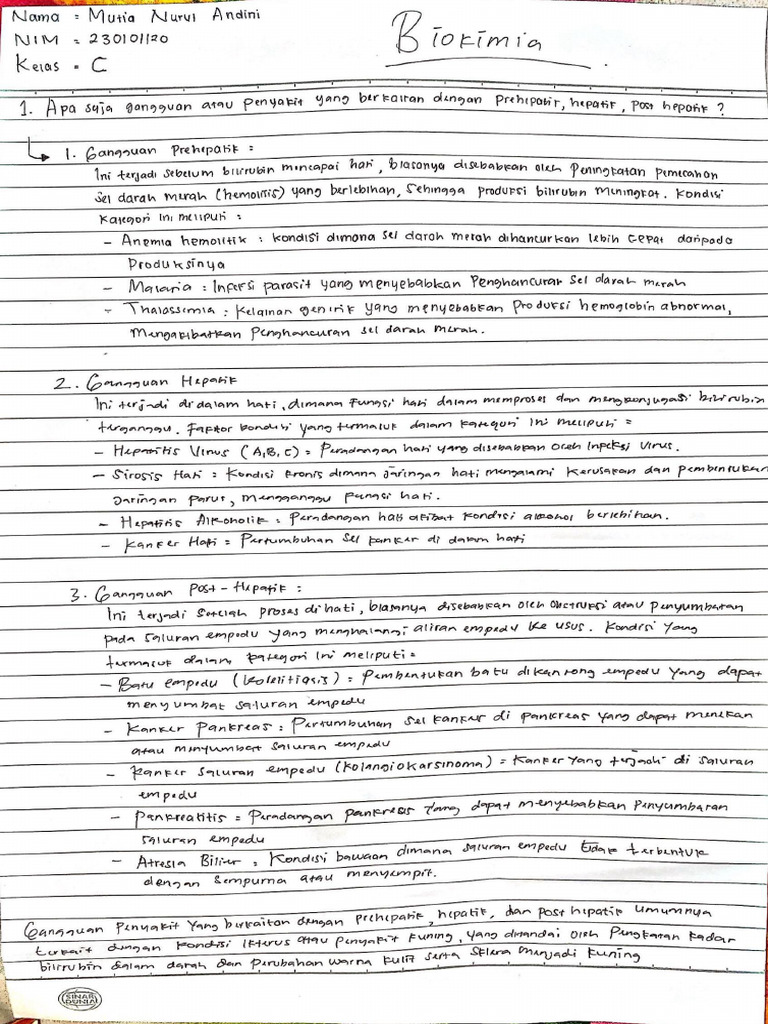 Nama = Mutia Nurul Andini
NIM = 230101120
Kelas = C
Biokimia
1. Apa saja gangguan atau penyakit yang berkaitan dengan prehepatik, hepatik, post hepatik ?
1. Gangguan Prehepatik :
Ini terjadi sebelum bilirubin mencapai hati, biasanya disebabkan oleh peningkatan pemecahan
sel darah merah (hemolisis) yang berlebihan, sehingga produksi bilirubin meningkat. Kondisi
kategori ini meliputi :
- Anemia hemolitik : kondisi dimana sel darah merah dihancurkan lebih cepat daripada
produksinya
- Malaria : Infeksi parasit yang menyebabkan penghancuran sel darah merah
- Thalassemia : Kelainan genetik yang menyebabkan produksi hemoglobin abnormal,
mengakibatkan penghancuran sel darah merah.
2. Gangguan Hepatik
Ini terjadi di dalam hati, dimana fungsi hati dalam memproses dan mengkonjugasi bilirubin
terganggu. Faktor kondisi yang termasuk dalam kategori ini meliputi =
- Hepatitis Virus (A,B,C) = Peradangan hati yang disebabkan oleh infeksi virus.
- Sirosis Hati = Kondisi kronis dimana jaringan hati mengalami kerusakan dan pembentukan
jaringan parut, mengganggu fungsi hati.
- Hepatitis Alkoholik = Peradangan hati akibat kondisi alkohol berlebihan.
- Kanker Hati = Pertumbuhan sel kanker di dalam hati
3. Gangguan Post-Hepatik :
Ini terjadi setelah proses di hati, biasanya disebabkan oleh obstruksi atau penyumbatan
pada saluran empedu yang menghalangi aliran empedu ke usus. Kondisi yang
termasuk dalam kategori ini meliputi =
- Batu empedu (kolelitiasis) = Pembentukan batu di kantong empedu yang dapat
menyumbat saluran empedu
- Kanker Pankreas : Pertumbuhan sel kanker di pankreas yang dapat menekan
atau menyumbat saluran empedu
- Kanker saluran empedu (kolangiokarsinoma) = Kanker yang terjadi di saluran
empedu
- Pankreatitis = Peradangan pankreas yang dapat menyebabkan penyumbatan
saluran empedu
- Atresia Bilier : Kondisi bawaan dimana saluran empedu tidak terbentuk
dengan sempurna atau menyempit.
Gangguan penyakit yang berkaitan dengan prehepatik, hepatik, dan post hepatik umumnya
terkait dengan kondisi ikterus atau penyakit kuning, yang ditandai oleh pengkatan kadar
bilirubin dalam darah dan perubahan warna kulit serta sklera menjadi kuning
SINAR DUNIA